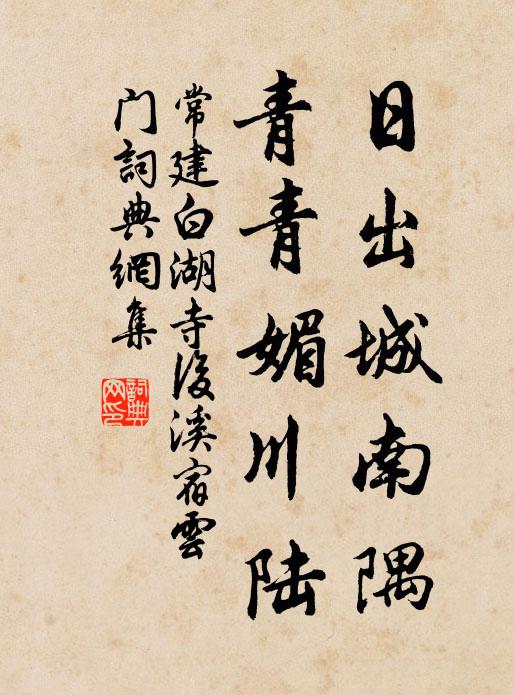 日出城南隅
青青媚川陆
常建白湖寺後溪宿雲
门詞典網集
詞典網印